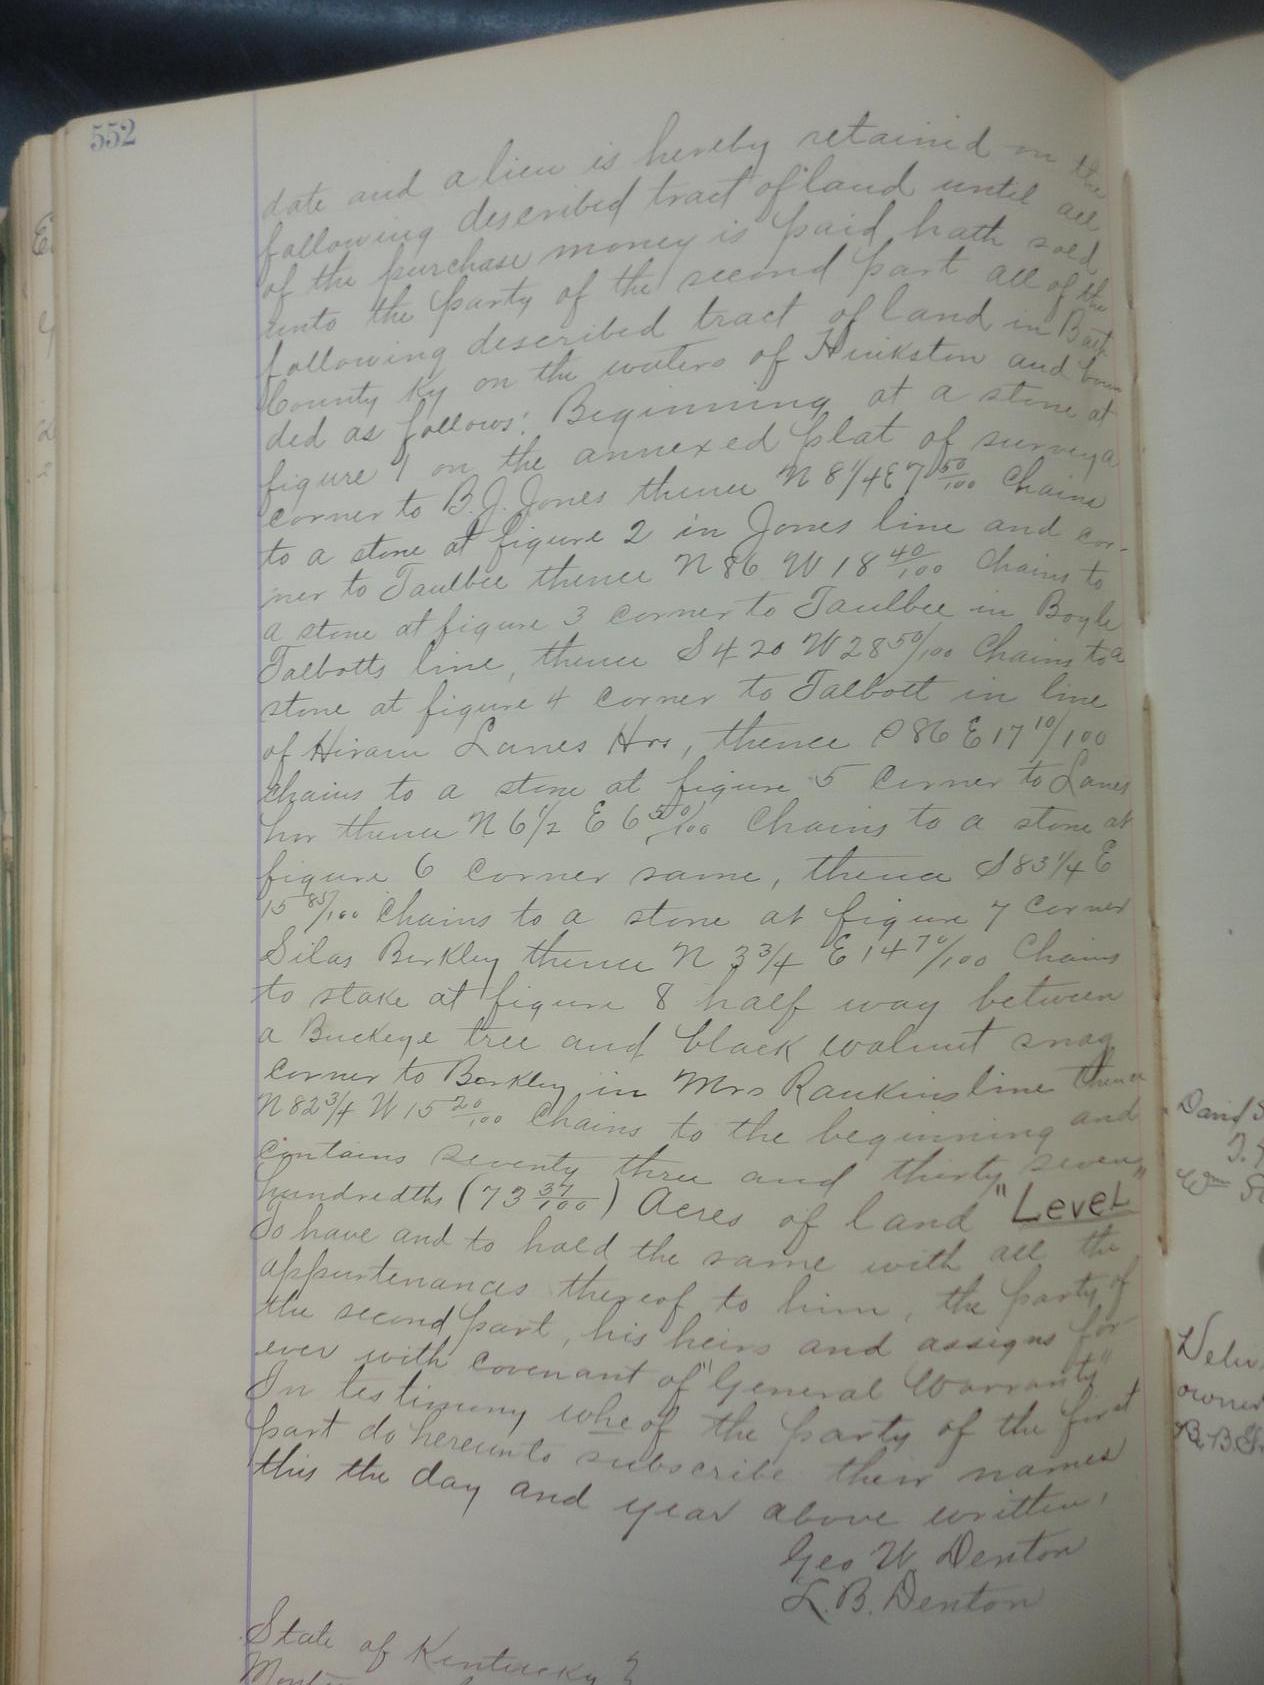 552
date and a lien is hereby retained on the
following described tract of land until all
of the purchase money is paid, hath sold
unto the party of the second part all of the
following described tract of land in Bath
County Ky on the waters of Hinkston and boun
ded as follows: Beginning at a stone at
figure 1 on the annexed plat of survey a
corner to B.J. Jones thence N 8 1/4 E 7 50/100 Chains
to a stone at figure 2 in Jones line and cor-
ner to Taulbee thence N 86 W 18 40/100 Chains to
a stone at figure 3 corner to Taulbee in Boyle
Talbotts line, thence S 4 20 W 28 50/100 Chains to a
stone at figure 4 corner to Talbott in line
of Hiram Lanes Hrs, thence S 86 E 17 10/100
chains to a stone at figure 5 corner to Lanes
hrs thence N 6 1/2 E 6 50/100 Chains to a stone at
figure 6 corner same, thence S 83 1/4 E
15 85/100 Chains to a stone at figure 7 corner
Silas Berkley thence N 3 3/4 E 14 70/100 Chains
to stake at figure 8 half way between
a Buckeye tree and black walnut snag
corner to Berkley in Mrs Rankins line thence
N 82 3/4 W 15 20/100 Chains to the beginning and
contains seventy three and thirty seven
hundredths (73 37/100) Acres of land "Level"
To have and to hold the same with all the
appurtenances thereof to him, the party of
the second part, his heirs and assigns for
ever with covenant of "General Warranty"
In testimony wheof the party of the first
part do hereunto subscribe their names
this the day and year above written,
Geo W. Denton
L. B. Denton
State of Kentucky }
David S
owner